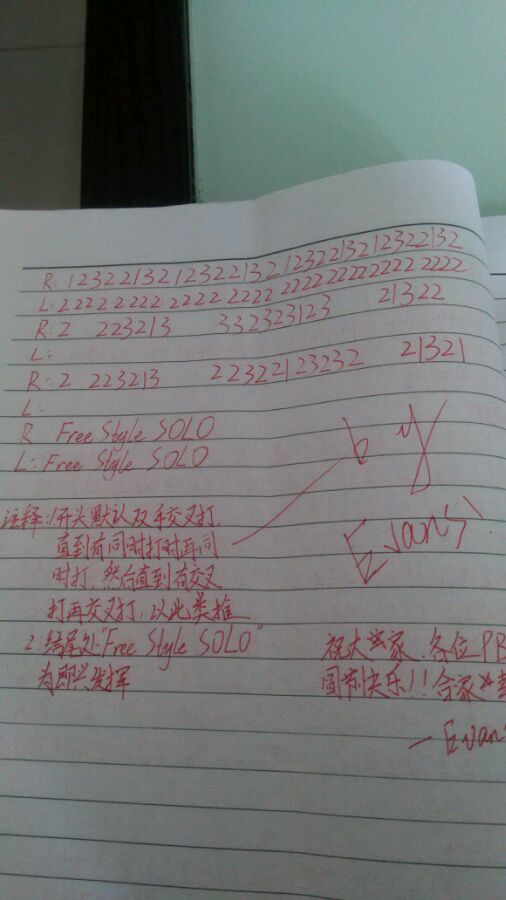 R: 12322132 12322132 12322132 12322132
L: 2222 2222 2222 2222 2222 2222 2222 2222
R: 2 223213 332323123 21322
L:
R: 2 223213 22322123232 21321
L:
R: Free Style SOLO
L: Free Style SOLO
by
Evans
注释:1.开头默认反手交叉打,
直到有同时打时再同
时打,然后直到有交叉
打再交叉打,以此类推
2.结尾处"Free Style SOLO"
为即兴发挥
祝大家,各位PB
快乐!!合家
—Evans